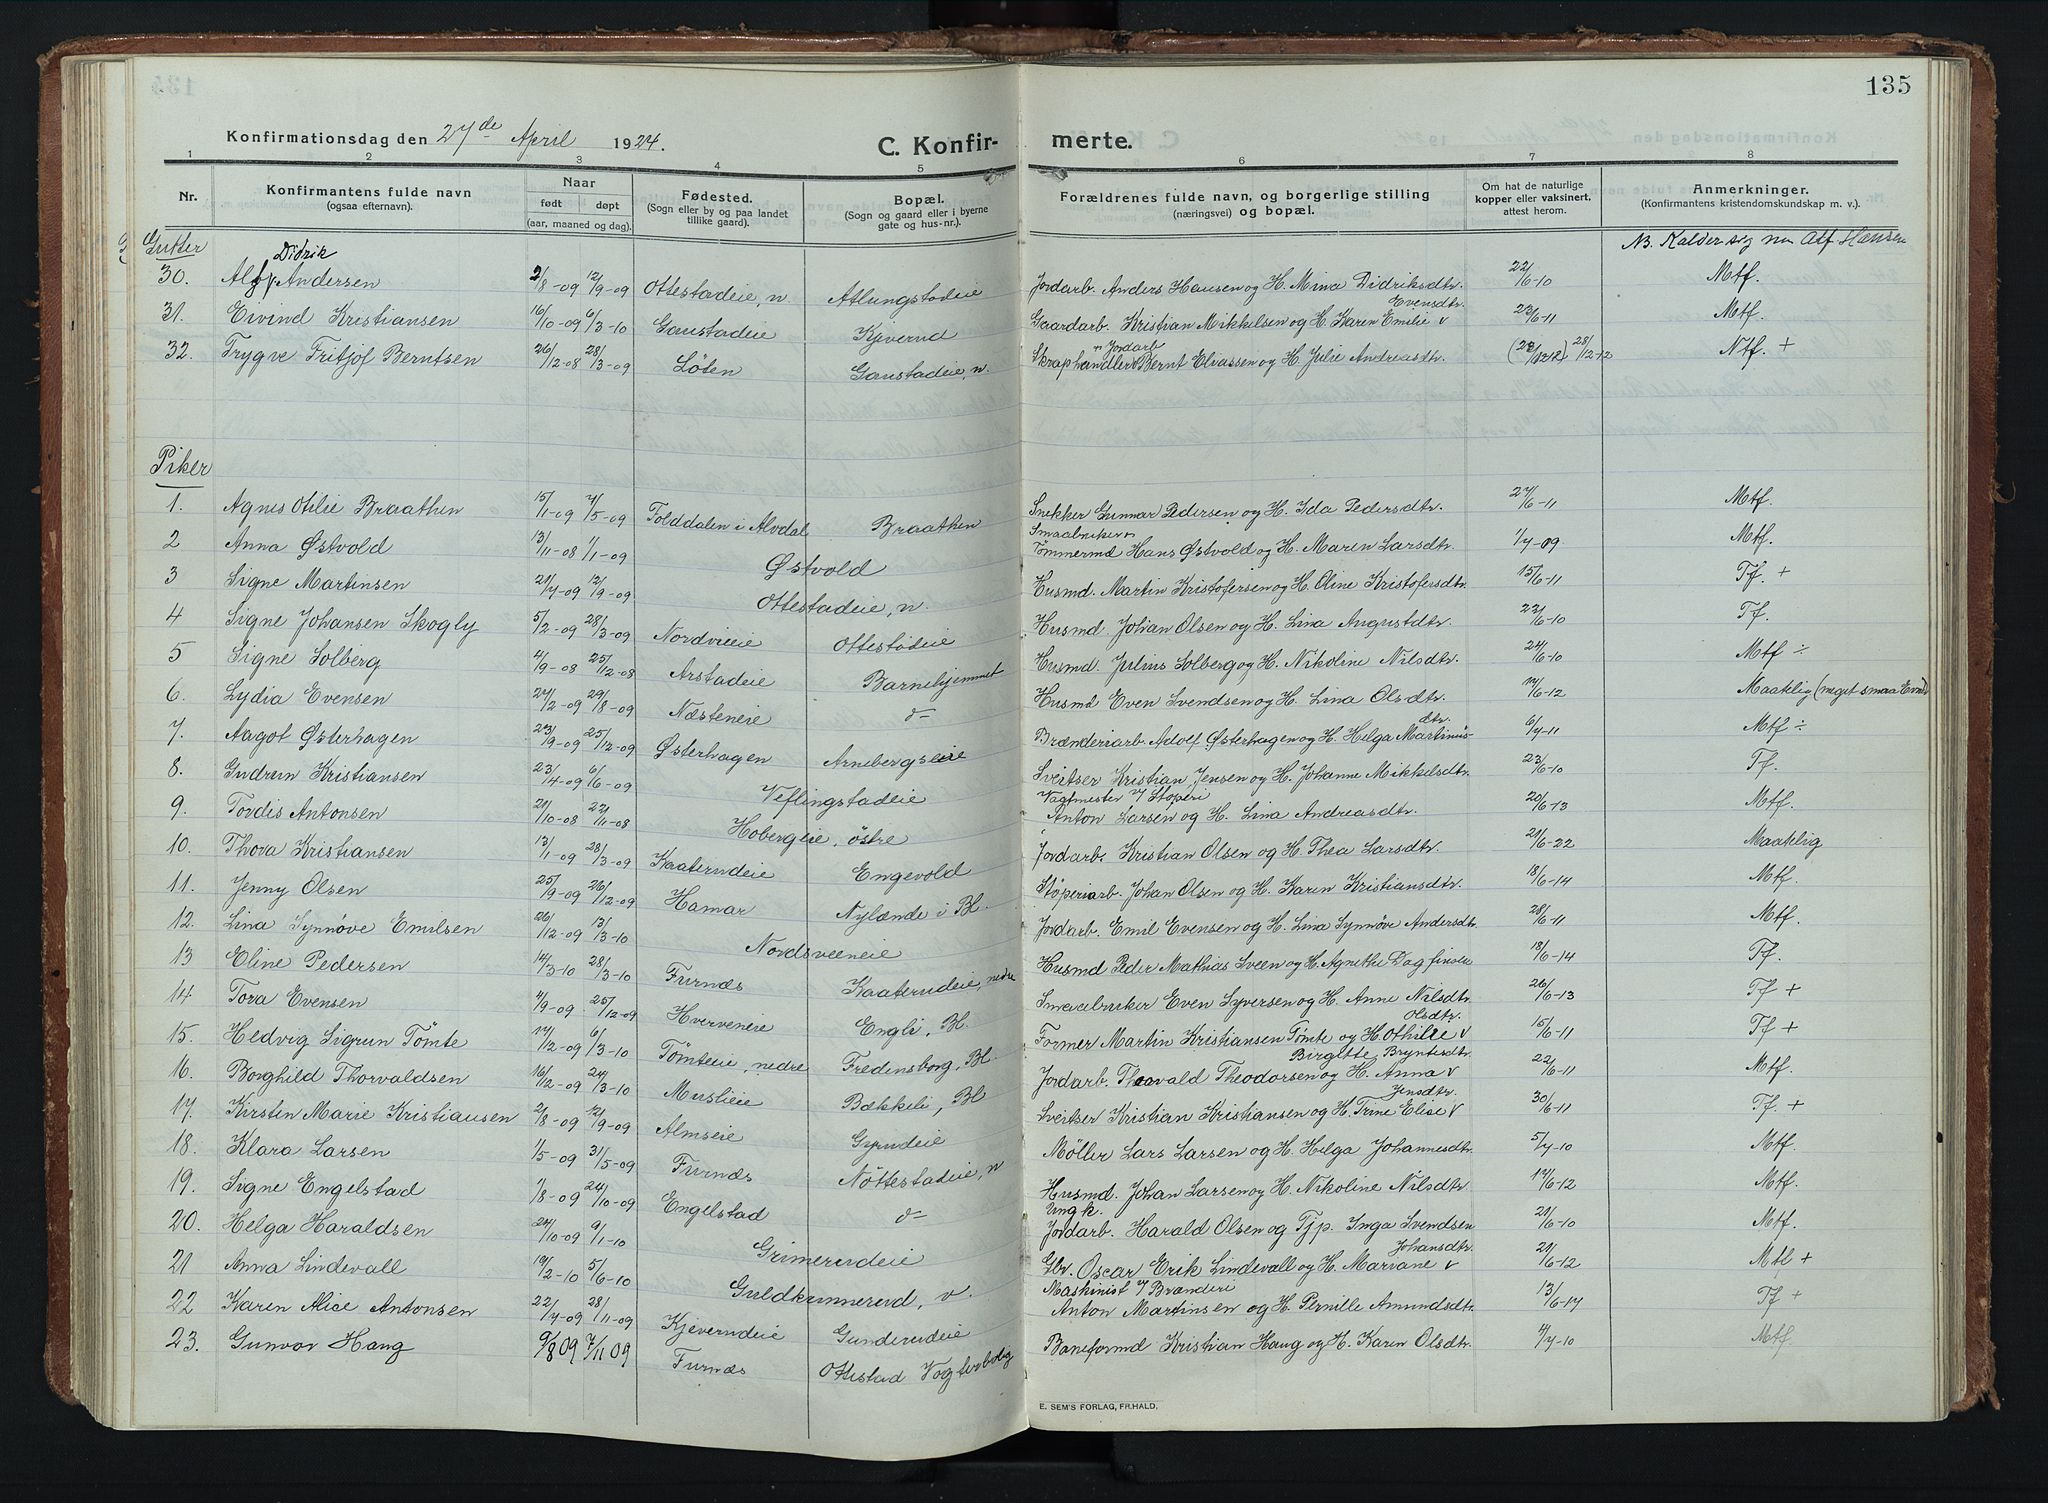 135
Konfirmationsdag den 27de April 1924.
C. Konfirmerte.
1 2 3 4 5 6 7 8
Nr. Konfirmantens fulde navn (ogsaa efternavn). Naar født døpt (aar, maaned og dag). Fødested. (Sogn eller by og paa landet tillike gaard). Bopæl. (Sogn og gaard eller i byerne gate og hus-nr.). Forældrenes fulde navn, og borgerlige stilling (næringsvei) og bopæl. Om hat de naturlige kopper eller vaksinert, attest herom. Anmerkninger. (Konfirmantens kristendomskundskap m. v.).
Gutter NB. Kalder sig nu Alf Hansen
30. Alf Didrik Andersen 2/8-09 12/9-09 Ottestadeie, n. Atlungstadeie Jordarb. Anders Hansen og H. Mina Didriksdtr. 22/6-10 Mtf.
31. Eivind Kristiansen 16/10-09 6/3-10 Gaustadeie Kjeverud Gaardarb. Kristian Mikkelsen og H. Karen Emilie Evensdtr. 23/6-11 Mtf.
32. Trygve Fritjof Berntsen 26/12-08 28/3-09 Løten Gaustadeie, n. Skraphandler n Jordarb Bernt Eliassen og H. Julie Andreasdtr. 28/12-12 Ntf. +
Piker
1. Agnes Otilie Braathen 15/1-09 7/5-09 Tolddalen i Alvdal Braathen Snekker Gunnar Pedersen og H. Ida Pedersdtr. 27/6-11 Mtf.
2 Anna Østvold 13/11-08 1/1-09 Østvold Smaabruker n Tømmermd Hans Østvold og H. Maren Larsdtr. 1/7-09 Mtf.
3 Signe Martinsen 21/7-09 12/9-09 Ottestadeie, n. Husmd. Martin Kristofersen og H. Oline Kristofersdtr. 15/6-11 Tf. +
4 Signe Johansen Skogly 5/2-09 28/3-09 Nordvieie Ottestadeie Husmd Johan Olsen og H. Lina Augustdtr. 22/6-10 Tf.
5 Signe Solberg 4/9-08 25/12-08 Arstadeie Barnehjemmet Husmd. Julius Solberg og H. Nikoline Nilsdtr. 24/6-10 Mtf ÷
6. Lydia Evensen 27/2-09 29/8-09 Næsteneie d- Husmd Even Svendsen og H. Lina Olsdtr. 17/6-12 Maatelig (meget smaa Evner
7. Aagot Østerhagen 23/9-09 25/12-09 Østerhagen Arnebergseie Brænderiarb. Adolf Østerhagen og H. Helga Martinusdtr. 6/7-11 Mtf ÷
8. Gudrun Kristiansen 23/14-09 6/6-09 Veflingstadeie Sveitser Kristian Jensen og H. Johanne Mikkelsdtr. 23/6-10 Tf.
9. Tordis Antonsen 21/10-08 22/11-08 Hobergeie, østre Vagtmester v/ Støperi Anton Larsen og H. Lina Andreasdtr. 20/6-13 Mtf.
10. Thora Kristiansen 13/1-09 28/3-09 Kaaterudeie Engevold Jordarb. Kristian Olsen og H. Thea Larsdtr. 21/6-22 Maatelig
11. Jenny Olsen 25/9-09 26/12-09 Hamar Nylænde i Bl. Støperiarb. Johan Olsen og H. Karen Kristiansdtr. 18/6-14 Mtf.
12. Lina Synnøve Emilsen 26/12-09 13/3-10 Nordsveeneie Jordarb. Emil Evensen og H. Lina Synnøve Andersdtr. 28/6-11 Mtf.
13 Eline Pedersen 14/3-10 28/3-10 Furnæs Kaaterudeie, nedre Husmd Peder Mathias Sveen og H. Agnethe Dagfinsen 18/6-14 Tf.
14 Tora Evensen 4/9-09 25/12-09 Hverveneie Engli, Bl. Smaabruker Even Syversen og H. Anne Nilsdtr. 26/6-13 Tf +
15. Hedvig Sigrun Tømte 17/2-09 6/3-10 Tømteeie, nedre Fredensborg, Bl. Former Martin Kristiansen Tømte og H. Othilie Olsdtr. 15/6-11 Tf +
16. Borghild Thorvaldsen 16/2-09 24/3-10 Muslieie Bækkeli, Bl Jordarb. Thorvald Theodorsen og H. Anna Birgitte Bryntesdtr 22/6-11 Mtf.
17. Kirsten Marie Kristiansen 2/8-09 12/9-09 Almseie Gyrudeie Sveitser Kristian Kristiansen og H. Trine Elise Jensdtr. 30/6-11 Tf. +
18. Klara Larsen 1/5-09 31/5-09 Furnæs Nøttestadeie, n Møller Lars Larsen og H. Helga Johannesdtr. 5/7-10 Mtf.
19. Signe Engelstad 1/8-09 24/10-09 Engelstad d- Husmd. Johan Larsen og H. Nikoline Nilsdtr. 17/6-12 Mtf.
20. Helga Haraldsen 24/10-09 9/1-10 Grimerudeie Ungk. Jordarb. Harald Olsen og Tjp. Inga Svendsen 21/6-10 Mtf.
21 Anna Lindevall 19/2-10 5/6-10 Guldkunnerud, v. Gbr. Oscar Erik Lindevall og H. Mariane Johansdtr. 21/6-12 Mtl +
22 Karen Alice Antonsen 22/7-09 28/11-09 Kjeverudeie Gunderudeie Maskinist v/ Brænderi Anton Martinsen og H. Pernille Amundsdtr. 13/6-17 Tf +
23. Gunvor Haug 9/8 09 7/11 09 Furnæs Ottestad Vogterbolig Baneformd Kristian Haug og H. Karen Olsdtr. 4/7-10 Mtf.
E. SEM'S FORLAG, FR.HALD,